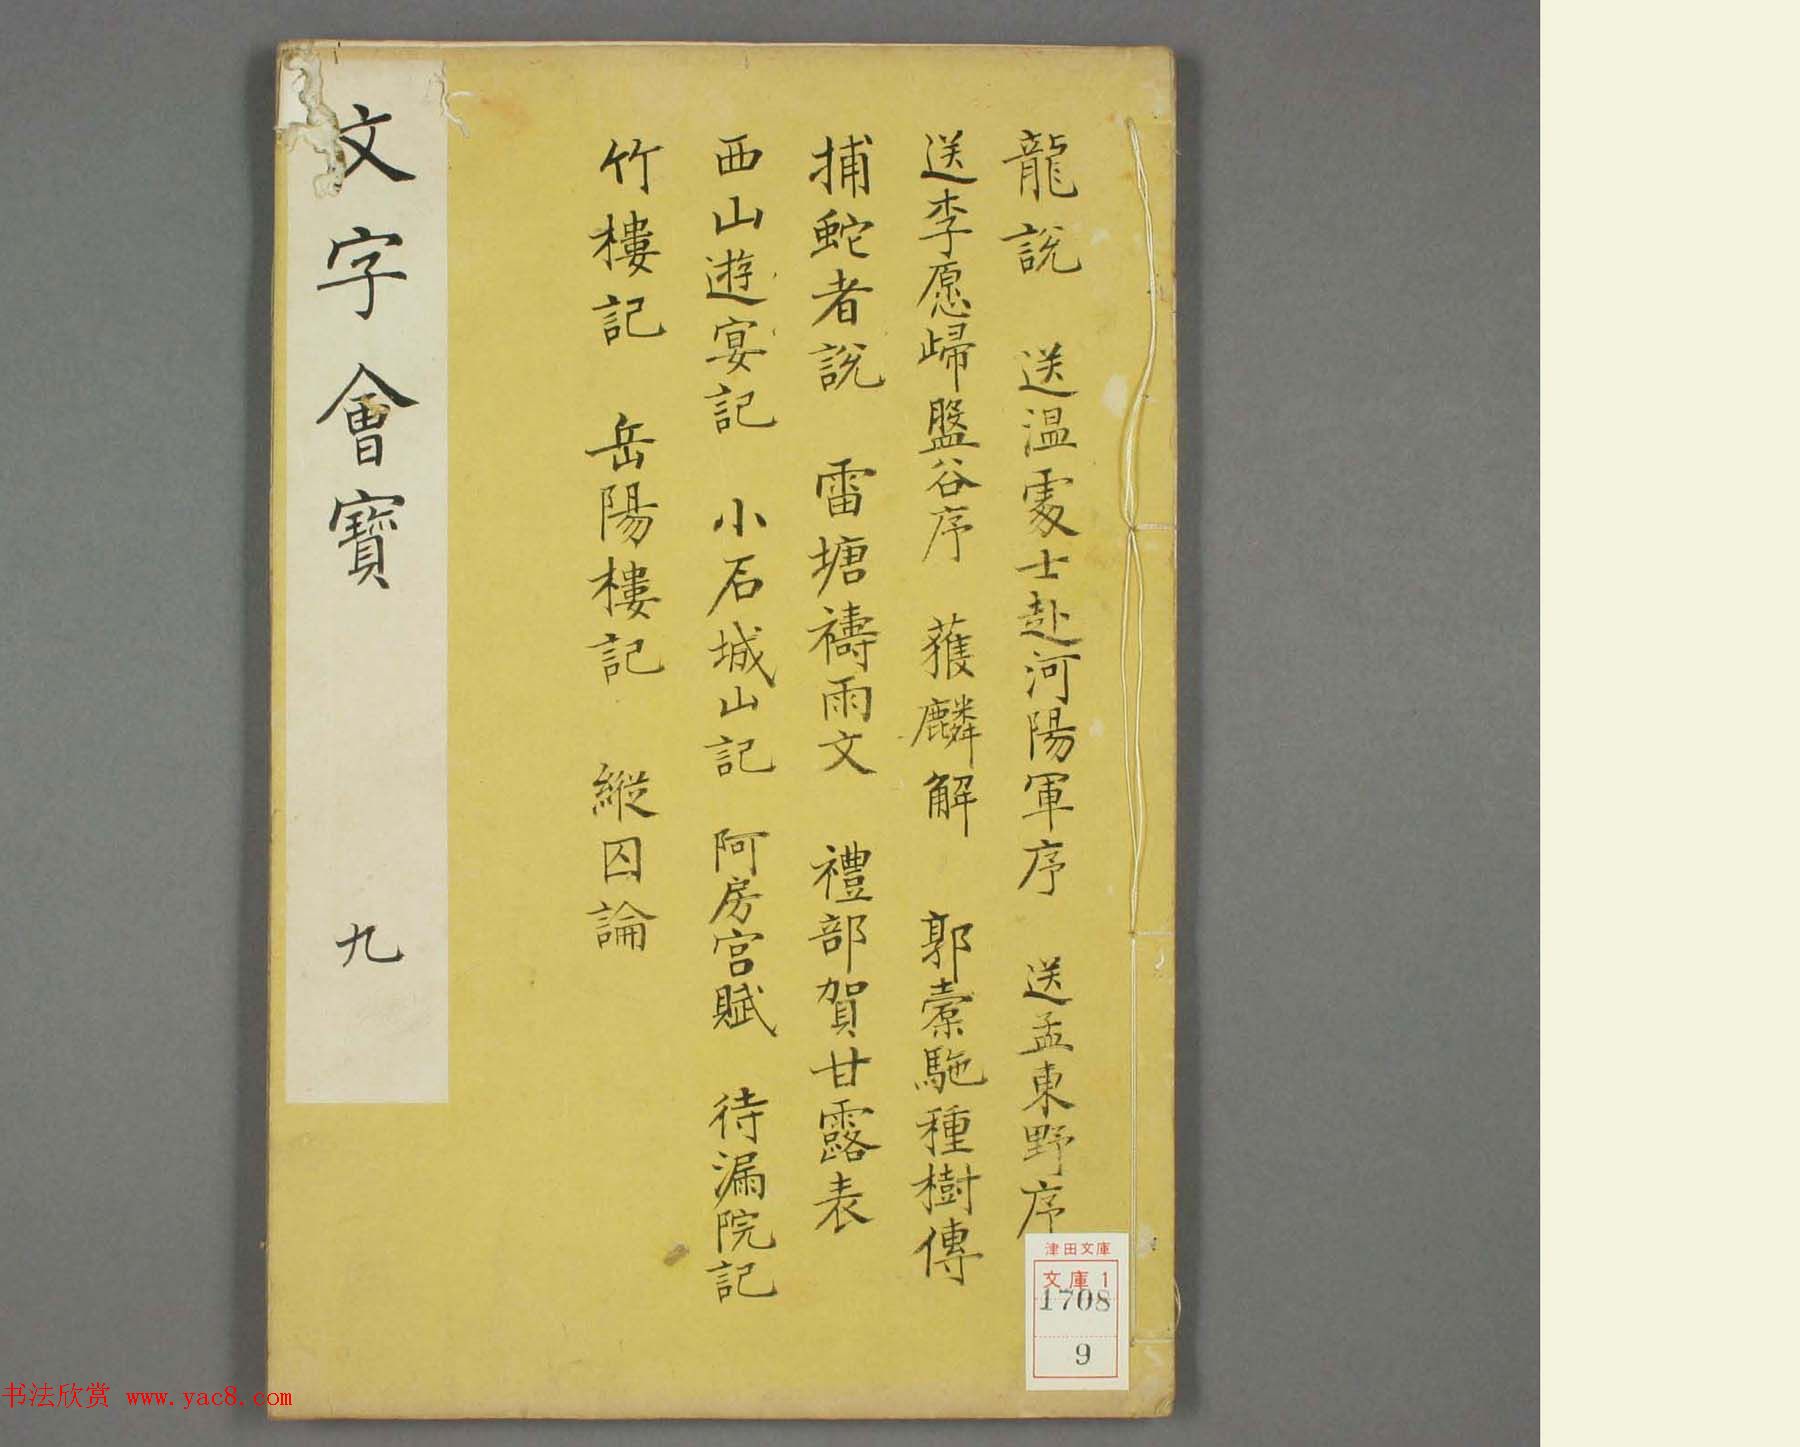 龍說 送温處士赴河陽軍序 送孟東野序
送李愿歸盤谷序 獲麟解 郭橐駞種樹傳
捕蛇者說 雷塘禱雨文 禮部賀甘露表
西山遊宴記 小石城山記 阿房宮賦 待漏院記
竹樓記 岳陽樓記 縱囚論
文字會寳 九
津田文庫
文庫1
1708
9
书法欣赏 www.yac8.com